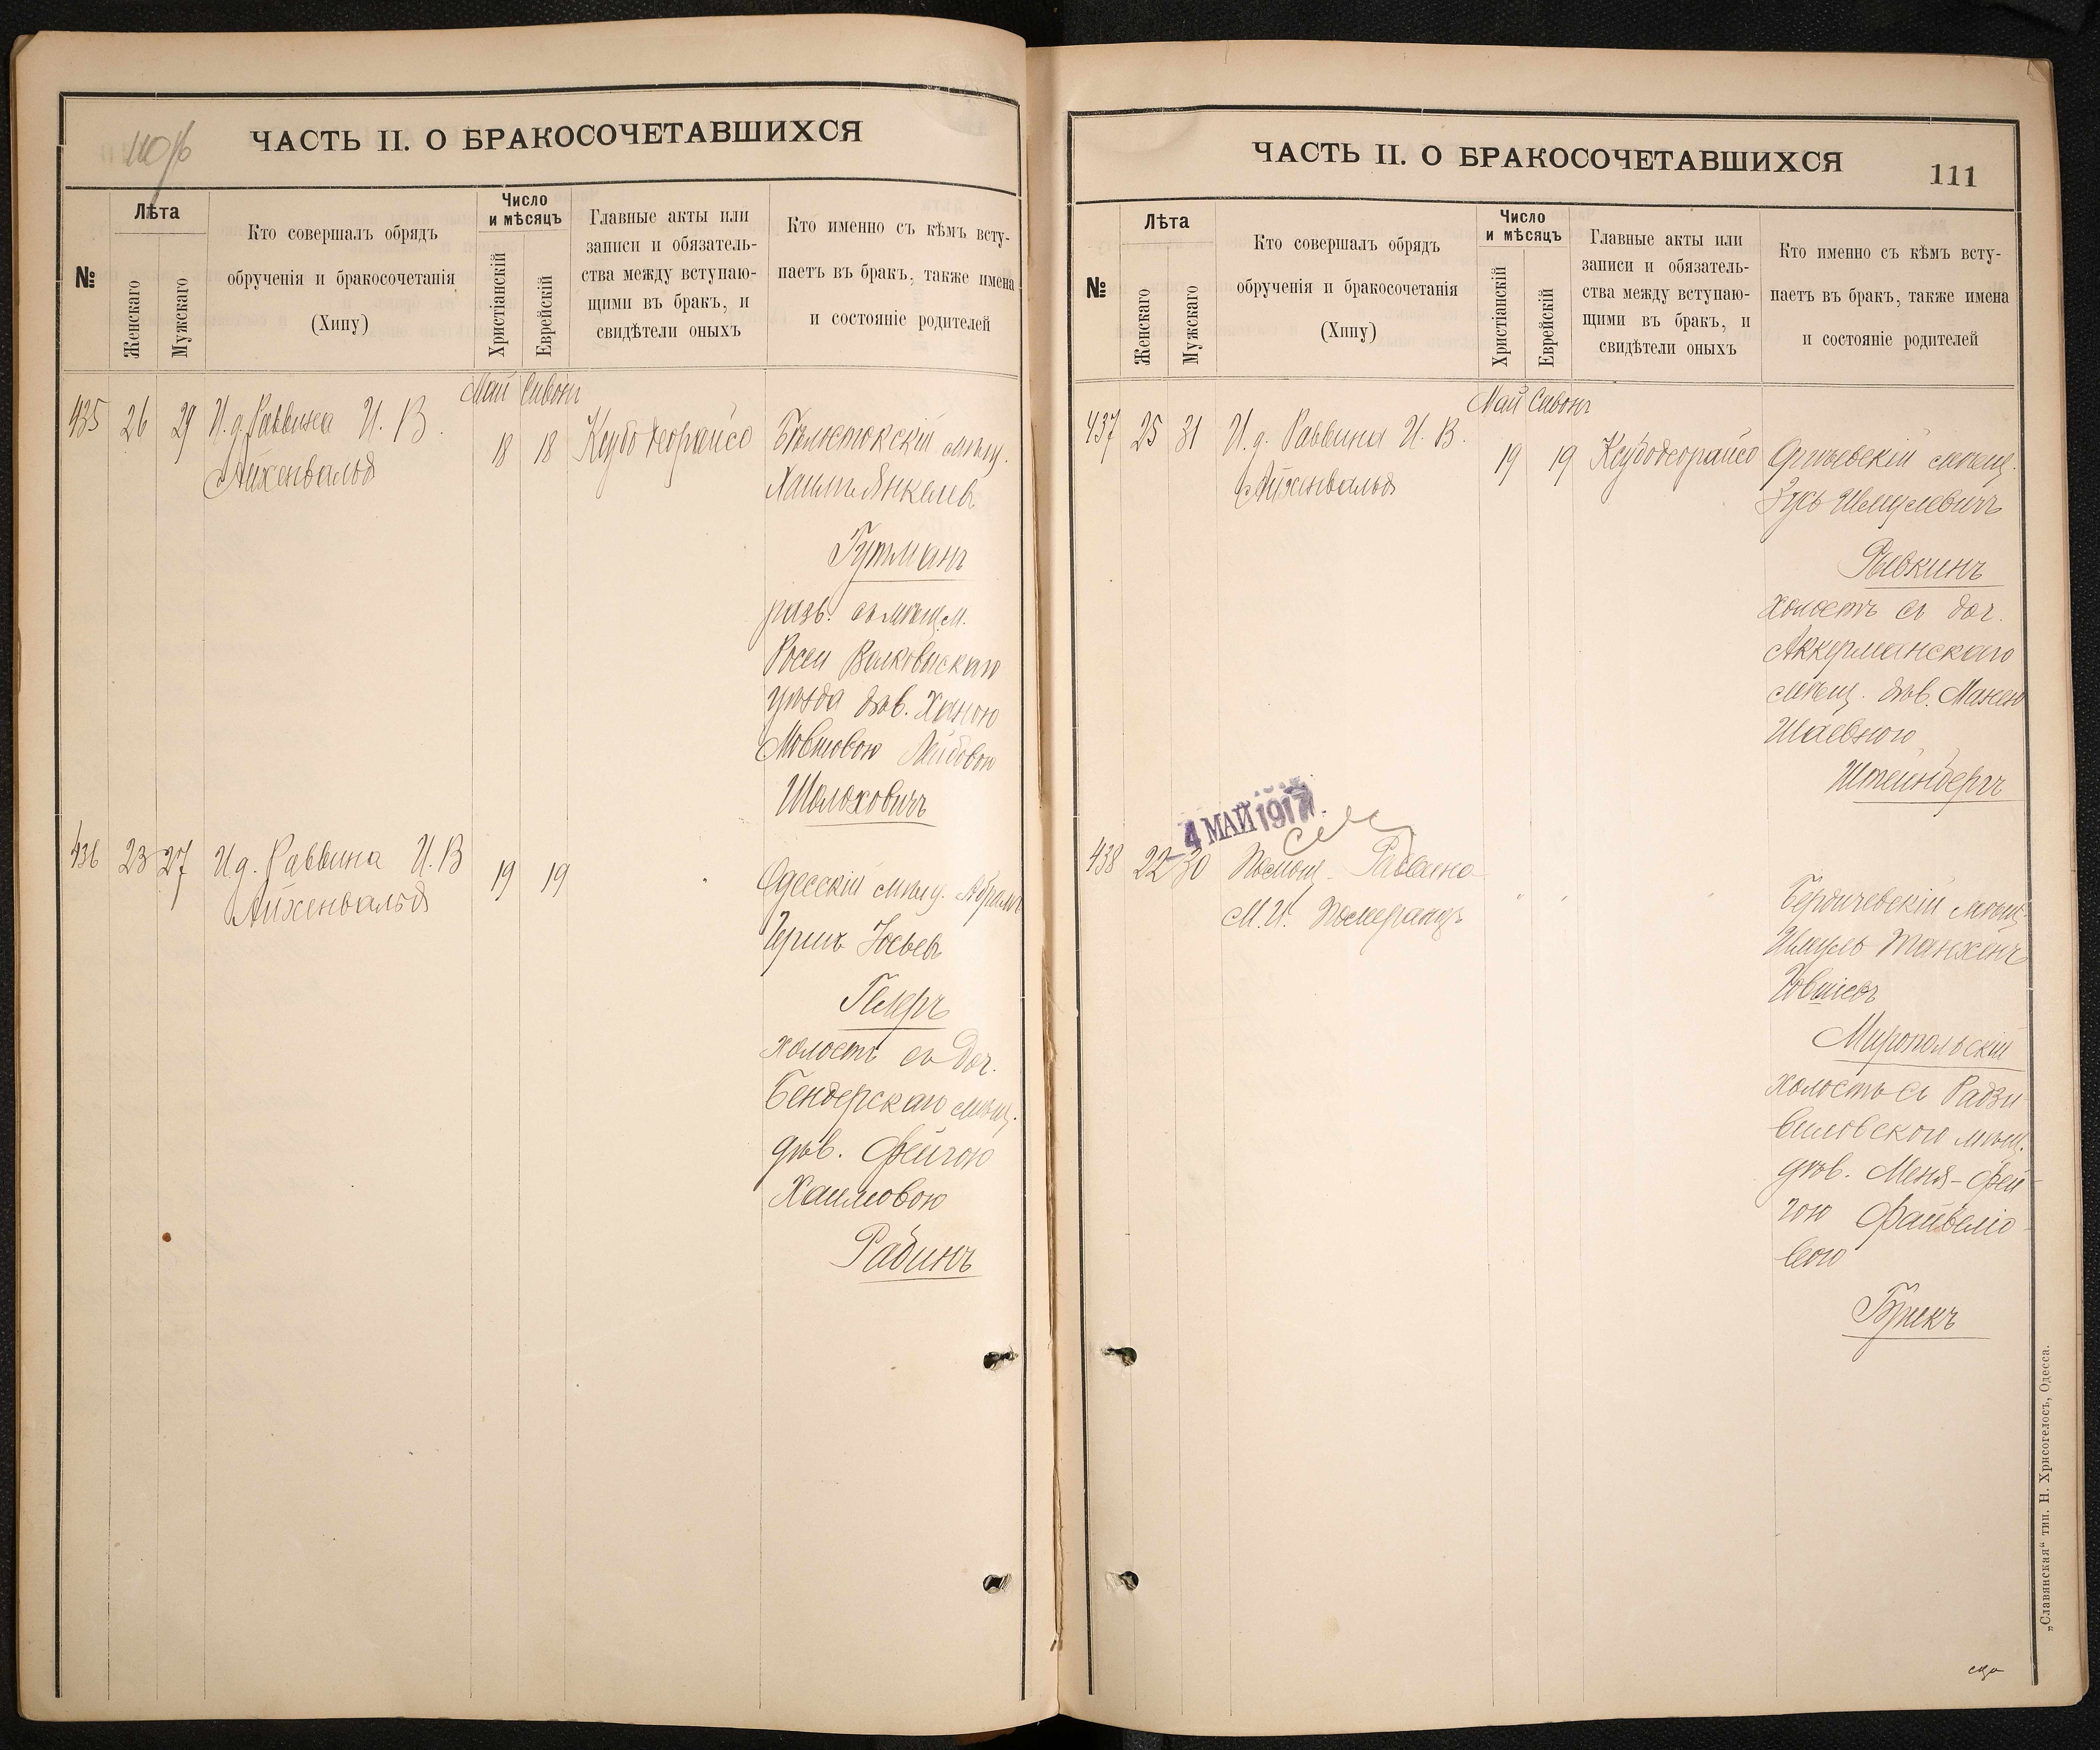 110/б
ЧАСТЬ II. О БРАКОСОЧЕТАВШИХСЯ
№
Лѣта
Женскаго
Мужскаго
Кто совершалъ обрядъ
обрученія и бракосочетанія
(Хипу)
Число
и мѣсяцъ
Христіанскій
Еврейскій
Главные акты или
записи и обязатель-
ства между вступаю-
щими въ бракъ, и
свидѣтели оныхъ
Кто именно съ кѣмъ всту-
паетъ въ бракъ, также имена
и состояніе родителей
Май Сивонъ
435 26 29 И. д. Раввина И. В.
Айхенвальдъ
18 18
Бѣлостокскій мѣщ.
Хаимъ Янкелев.
Гутманъ
разв. съ мѣщ. м.
Росси Волковыскаго
уѣзда дѣв. Ханою
Мовшовою Лейбовою
Шолоховичъ
436 23 27 И д. Раввина И. В
Айхенвальдъ
19 19
Одесскій мѣщ. Абрамъ
Гершъ Іосьев
Гелеръ
холостъ съ доч.
Бендерскаго мѣщ.
дѣв. Фейгою
Хаимовою
Рабинъ
ЧАСТЬ II. О БРАКОСОЧЕТАВШИХСЯ
111
№
Лѣта
Женскаго
Мужскаго
Кто совершалъ обрядъ
обрученія и бракосочетанія
(Хипу)
Число
и мѣсяцъ
Христіанскій
Еврейскій
Главные акты или
записи и обязатель-
ства между вступаю-
щими въ бракъ, и
свидѣтели оныхъ
Кто именно съ кѣмъ всту-
паетъ въ бракъ, также имена
и состояніе родителей
Май Сивонъ
437 25 31 И. д. Раввина И. В.
Айхенвальдъ
19 19
Оргѣевскій мѣщ.
Зусь Шмулевичъ
Рывкинъ
холостъ съ доч.
Аккерманскаго
мѣщ. дѣв. Манею
Шаевною
Штейнбергъ
4 МАЙ 1917
438 22 30 Помощ. Раввина
М. И. Померанцъ
" " "
Бердичевскій мѣщ.
Шмуль Танхенъ
Іовшіев
Миропольскій
холостъ съ Радзи-
виловскою мѣщ.
дѣв. Меня-Фей-
гою Файвелю-
вою
Брикъ
„Славянская“ тип. Н. Хрисогелосъ, Одесса.